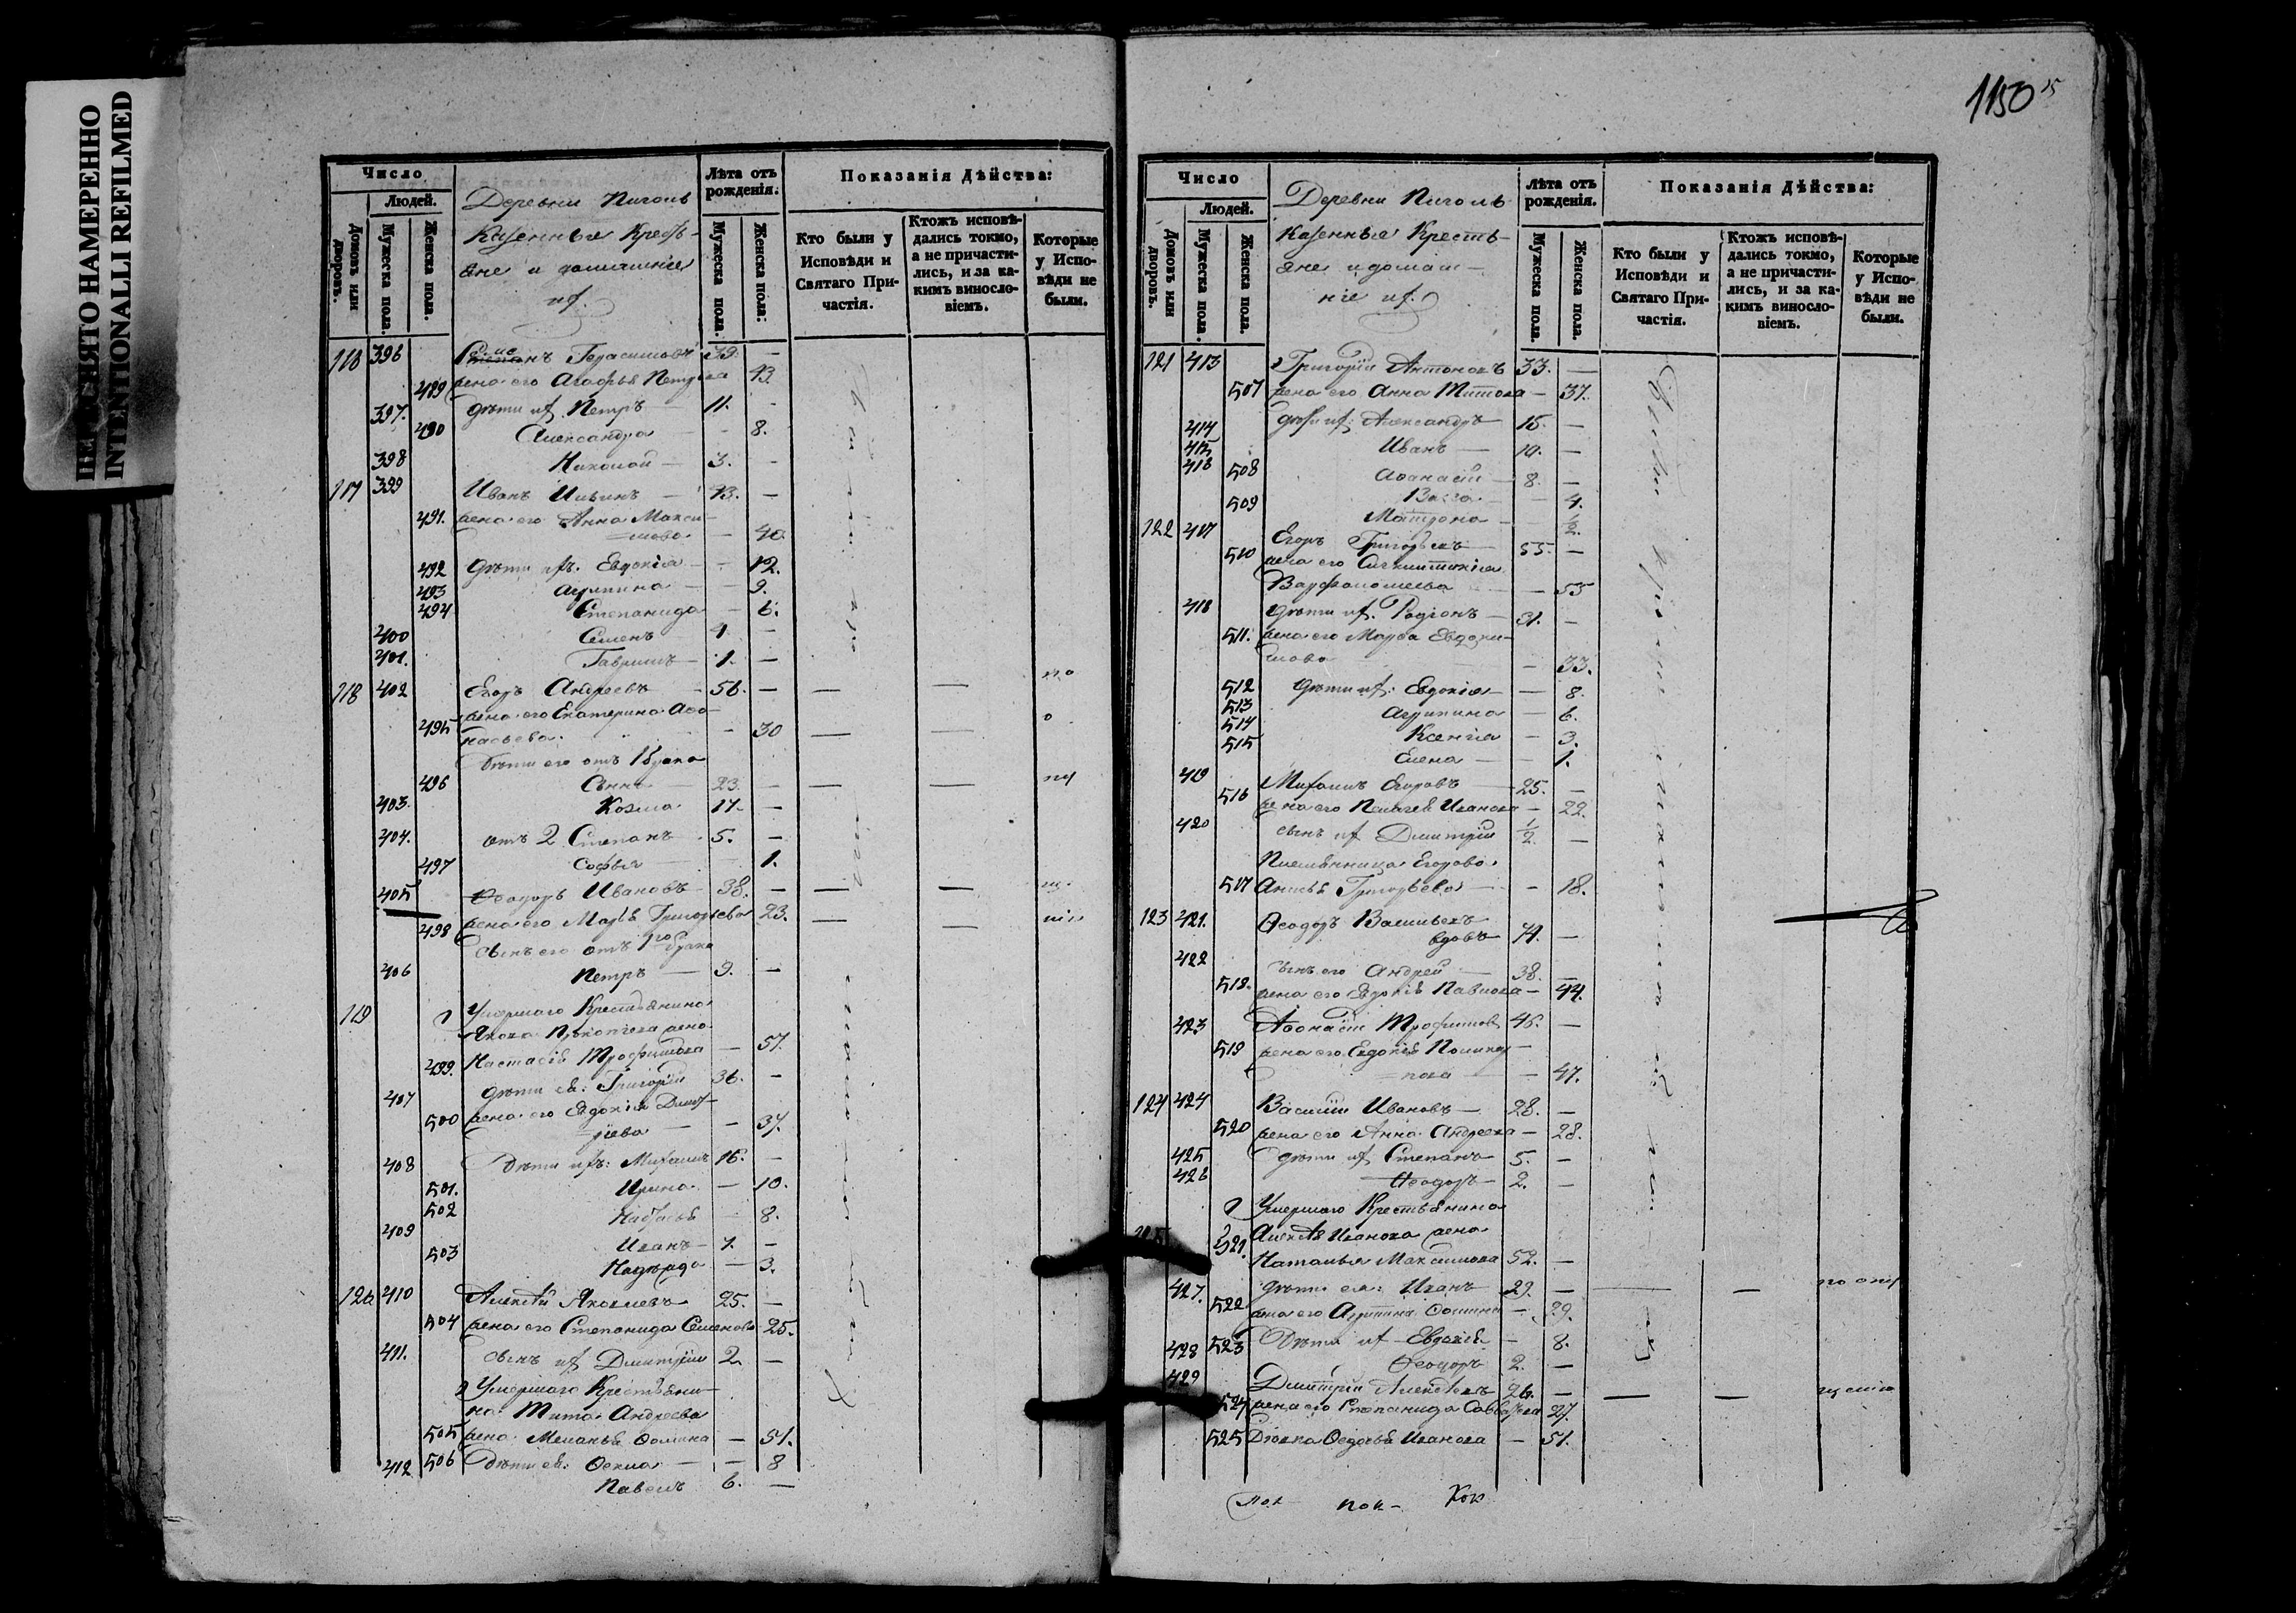 ПЕРЕСНЯТО НАМЕРЕННО
INTENTIONALLI REFILMED
Число
Людей.
Домовъ или дворовъ.
Мужеска пола.
Женска пола.
Деревни
Казенныя Кресть-
яне и домашніе
их
Лѣта отъ рожденія.
Мужеска пола.
Женска пола:
Показанія Дѣйства:
Кто были у Исповѣди и Святаго При-частія.
Ктожъ исповѣ-дались токмо, а не причасти-лись, и за ка-кимъ винословіемъ.
Которые у Испо-вѣди не были.
116 396 Герасимовъ 39. —
489 жена его Агафья Петрова 43.
397. дѣти их Петръ — 11. -
490 Александра — - 8.
398 Николай — 3. -
117 399 Иванъ Ильинъ — 43. —
491. жена его Анна Макси-
мова — 40
492 дѣти ихъ. Евдокія — - 12.
493 Агрипина — - 9.
494 Степанида - 6.
400 Семенъ 4 —
401. Гавріилъ — 1. —
118 402 Егоръ Андреевъ - 56. — — —
жена его Екатерина Аѳа-
495 насьева. - 30 — —
Дѣти его отъ 1 брака
496 Анна 23. — — —
403. Козма 17. —
404. отъ 2 Степанъ 5. —
497 Софья — 1.
405 Ѳеодоръ Ивановъ — 38. — — —
498 жена его Марья Григорьева 23. — —
сынъ его отъ 1го брака
406 Петръ — 9. —
119 Умершаго Крестьянина
Якова Прокопьева жена
499. Настасія Трофимова — 57.
407 дѣти ея: Григорій 36. -
500 жена его Евдокія Дмит-
ріева — - 37.
408 Дѣти ихъ: Михаилъ 16. -
501. Ирина — 10.
502 8.
409 Иванъ — 7. -
503 Надежда — 3.
120 410 Алексѣй Яковлевъ 25. —
504 жена его Степанида Семенова 25.
411. сынъ их Дмитрій 2. —
Умершаго Крестьяни-
на Тита Андреева
505 жена Меланья Ѳомина — 51.
506 Дѣти ея: Ѳекла — — 8
412 Павелъ 6. —
1150
Число
Людей.
Домовъ или дворовъ.
Мужеска пола
Женска пола.
Деревни
Казенныя Кресть-
яне и домаш-
ніе их.
Лѣта отъ рожденія.
Мужеска пола.
Женска пола.
Показанія Дѣйства:
Кто были у Исповѣди и Святаго При-частія.
Ктожъ исповѣ-дались токмо, а не причасти-лись, и за ка-кимъ винословіемъ.
Которые у Испо-вѣди не были.
121 413 Григорій Антоновъ 33. —
507 жена его Анна Титова — 37.
414 дѣти их: Александръ 15. —
415 Иванъ — 10. —
416 508 Аѳанасій — 8. —
509 Васса — 4.
Матрона — 1/2.
122 417 Егоръ Григорьевъ — 55. —
510 жена его Синклитикія
Варфоломеева — 55
418 дѣти их. Родіонъ — 31. —
511. жена его Марѳа Евдоки-
мова — 33.
512 дѣти их: Евдокія — 8.
513 Агрипина — 6.
514 Ксенія — 3.
515 Елена — 1.
419 Михаилъ Егоровъ 25. —
516 жена его Пелагея Иванова — 22.
420 сынъ их Дмитрій 1/2. —
Племянница Егорова
517 Анисья Григорьева — - 18.
123 421. Ѳеодоръ Васильевъ
вдовъ — 74. —
422 сынъ его Андрей — 38. —
518. жена его Евдокія Павлова — 44.
423 Аѳанасій Трофимовъ 46. —
519 жена его Евдокія Поликар-
пова — — 47.
124 424 Василій Ивановъ — 28. —
520 жена его Анна Андреева — 28.
425 дѣти их Степанъ 5. —
426 Ѳеодоръ — 2. —
Умершаго Крестьянина
Алексѣя Иванова жена
521. Наталья Максимова 52. —
427. дѣти ея: Иванъ — 29. — — —
522 жена его Агрипина Ѳомина — 29.
523 Дѣти их Евдокія — 8.
428 Ѳеодоръ 2. —
429 Дмитрій Алексѣевъ 26. — — —
524 жена его Степанида Савельева 27.
525 Дѣвка Ѳедосья Иванова — 51.